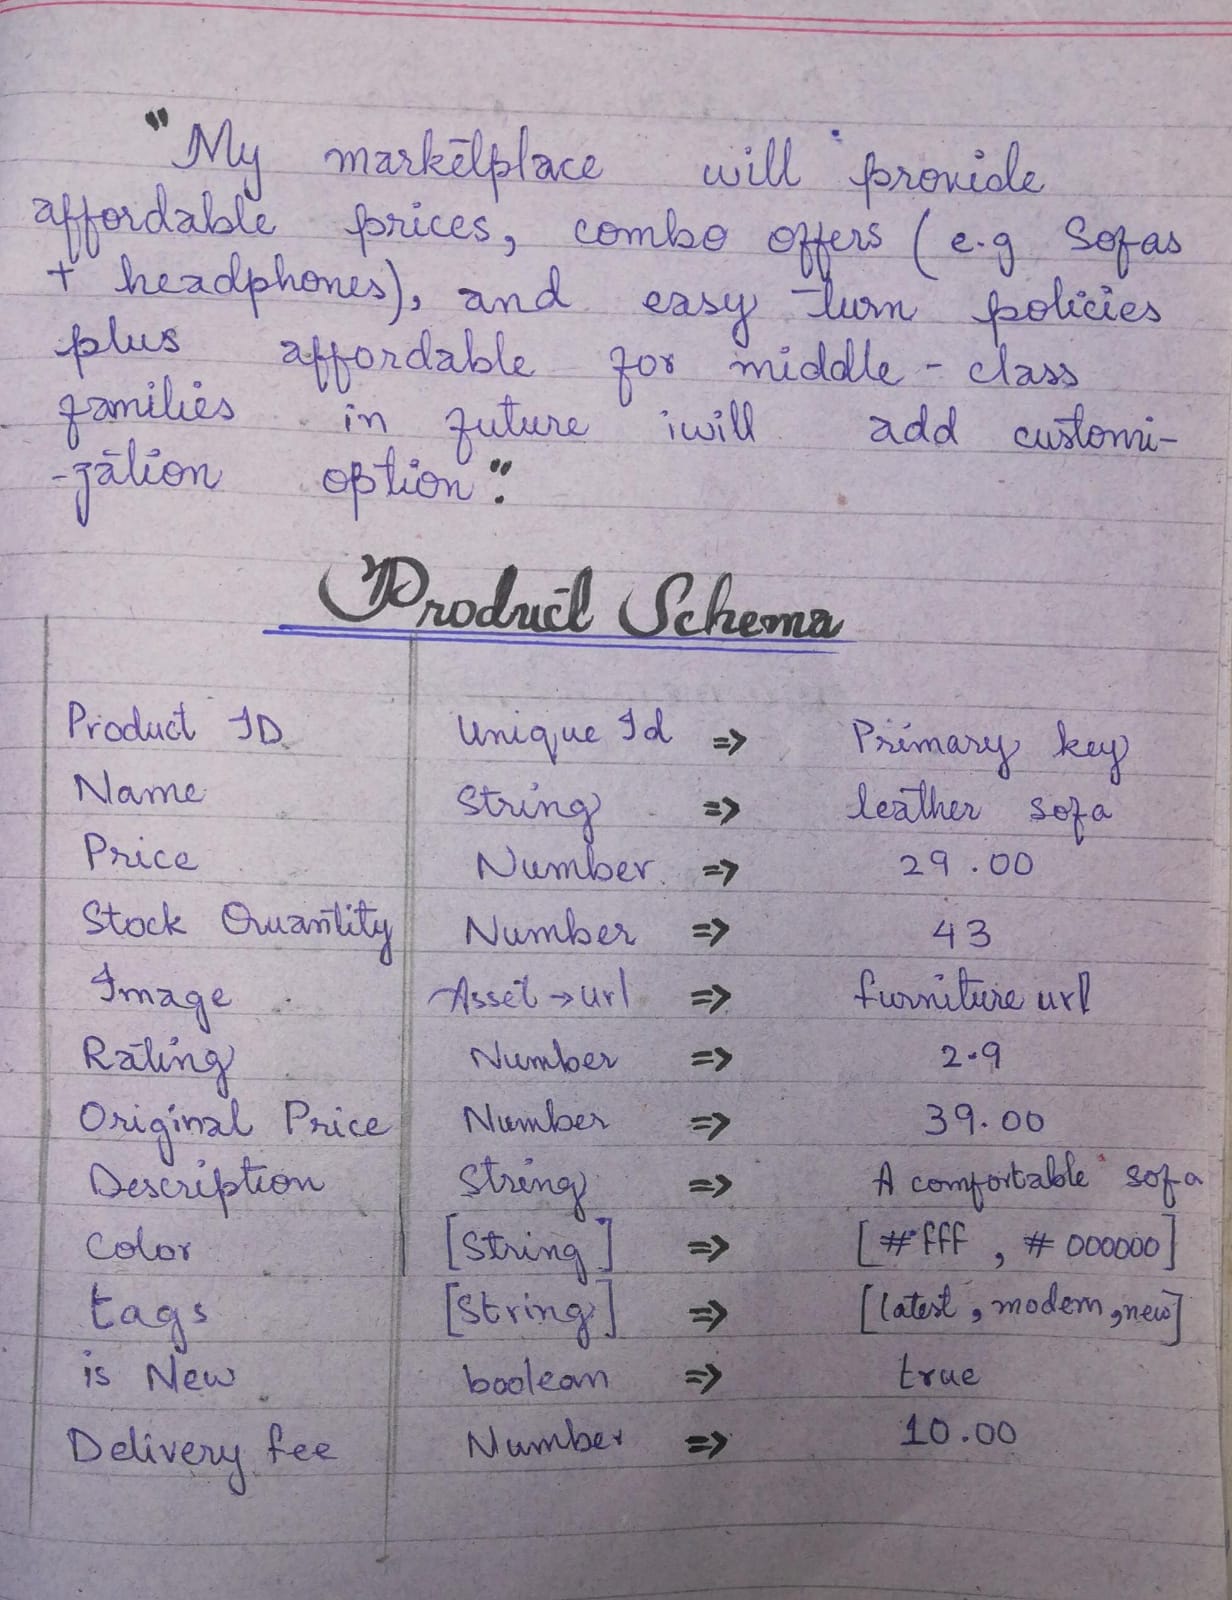 "My marketplace will provide
affordable prices, combo offers (e.g Sofas
+ headphones), and easy turn policies
plus affordable for middle-class
families in future iwill add customi-
-zation option".
Product Schema
Product ID Unique Id => Primary key
Name String => leather sofa
Price Number => 29.00
Stock Quantity Number => 43
Image Asset → url => furniture url
Rating Number => 2.9
Original Price Number => 39.00
Description String => A comfortable sofa
Color [String] => [#fff, #000000]
tags [String] => [latest, modern, new]
is New boolean => true
Delivery fee Number => 10.00